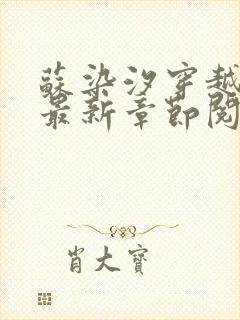 蘇染汐穿越
最新章節閱
肖大寶